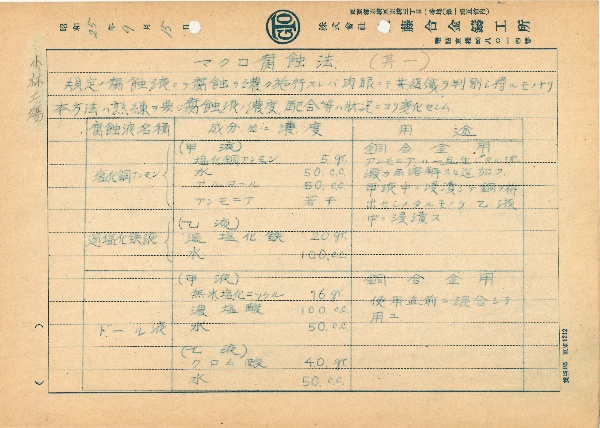 昭和25年9月15日
GTO
株式會社 藤合金鑄工所
小林工場
マクロ腐蝕法 (其一)
規定ノ腐蝕液ニテ腐蝕ヲ濃ク施行スレバ肉眼ニテ其組織ヲ判別シ得ルモノナリ
本方法ハ熟練ヲ要シ腐蝕液ノ濃度 配合等ハ狀況ニヨリ変化セシム
腐蝕液名稱 成分並ニ濃度 用途
塩化銅アンモン
(甲 液)
塩化銅アンモン 5 gr.
水 50. c.c.
アルコール 50. c.c.
アンモニア 若干
銅合金用
アンモニアハ一旦生ジタル沈
澱ノ再溶解スル迄加フ
甲液中ニ浸漬シテ銅ヲ析
出セシメタルモノヲ乙液
中ニ浸漬ス
過塩化鉄液
(乙 液)
過塩化鉄 20 gr.
水 100. c.c.
ドール液
(甲 液)
無水塩化ニッケル 16 gr.
濃塩酸 100. c.c.
水 50. c.c.
銅合金用
使用直前ニ混合シテ
用ユ
(乙 液)
クロム酸 40. gr.
水 50. c.c.